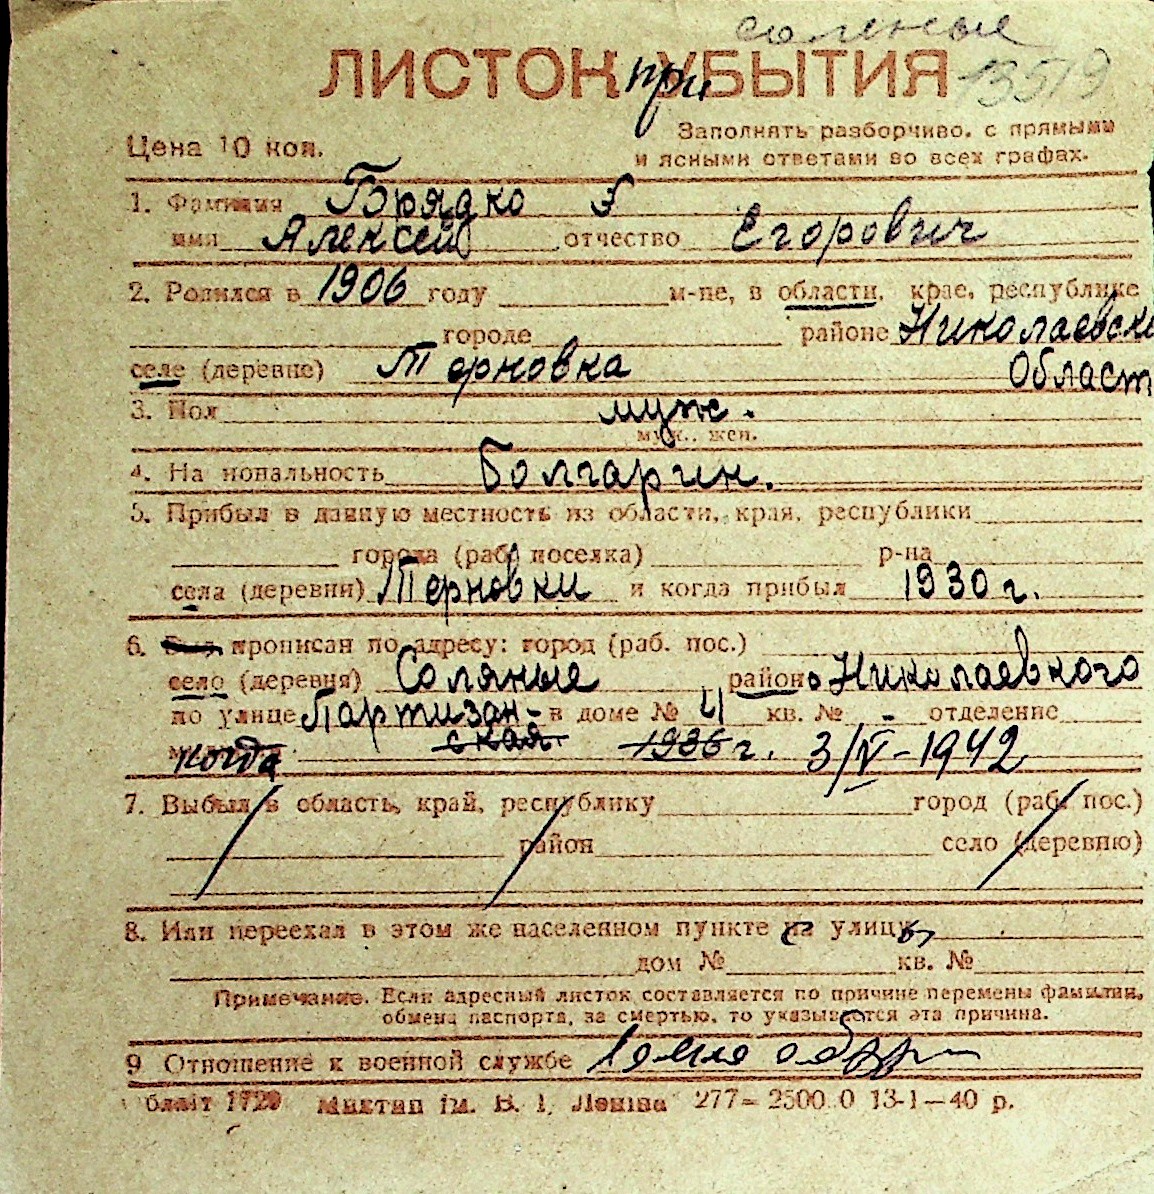 соленые
ЛИСТОК при УБЫТИЯ 13519
Цена 10 коп. Заполнять разборчиво, с прямыми
и ясными ответами во всех графах.
1. Фамилия Брядко
имя Алексей отчество Егорович
2. Родился в 1906 году м-це, в области, крае, республике
городе районе Николаевско
селе (деревне) Терновка Област
3. Пол муж.
муж., жен.
4. На нональность Болгарин.
5. Прибыл в данную местность из области, края, республики
города (раб. поселка) р-на
села (деревни) Терновки и когда прибыл 1930 г.
6. Был прописан по адресу: город (раб. пос.)
село (деревня) Соляные района Николаевкого
по улице Партизан- в доме № 4 кв. № - отделение
когда ская 1936 г. 3/IV-1942
7. Выбыл в область, край, республику город (раб. пос.)
район село (деревню)
8. Или переехал в этом же населенном пункте на улицу
дом № кв. №
Примечание. Если адресный листок составляется по причине перемены фамилии,
обмена паспорта, за смертью, то указывается эта причина.
9 Отношение к военной службе
1720 ім. В. І. Леніна 277— 2500 0 13-1—40 р.